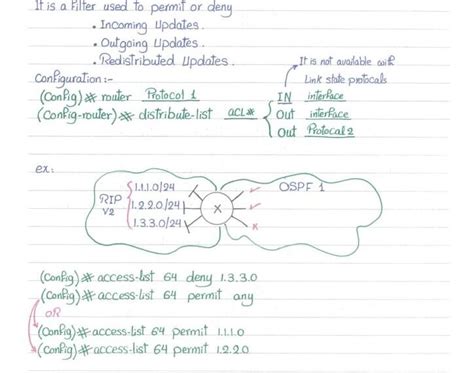 It is a Filter used to permit or deny
• Incoming Updates.
• Outgoing Updates.
• Redistributed Updates.
It is not available with
Link state protocals
Configuration:-
(Config)# router Protocol 1
(Config-router)# distribute-list ACL#
IN interface
Out interface
Out Protocal 2
ex:
RIP V2
1.1.1.0/24
1.2.2.0/24
1.3.3.0/24
X
OSPF 1
(Config)# access-list 64 deny 1.3.3.0
(Config)# access-list 64 permit any
OR
(Config)# access-list 64 permit 1.1.1.0
(Config)# access-list 64 permit 1.2.2.0